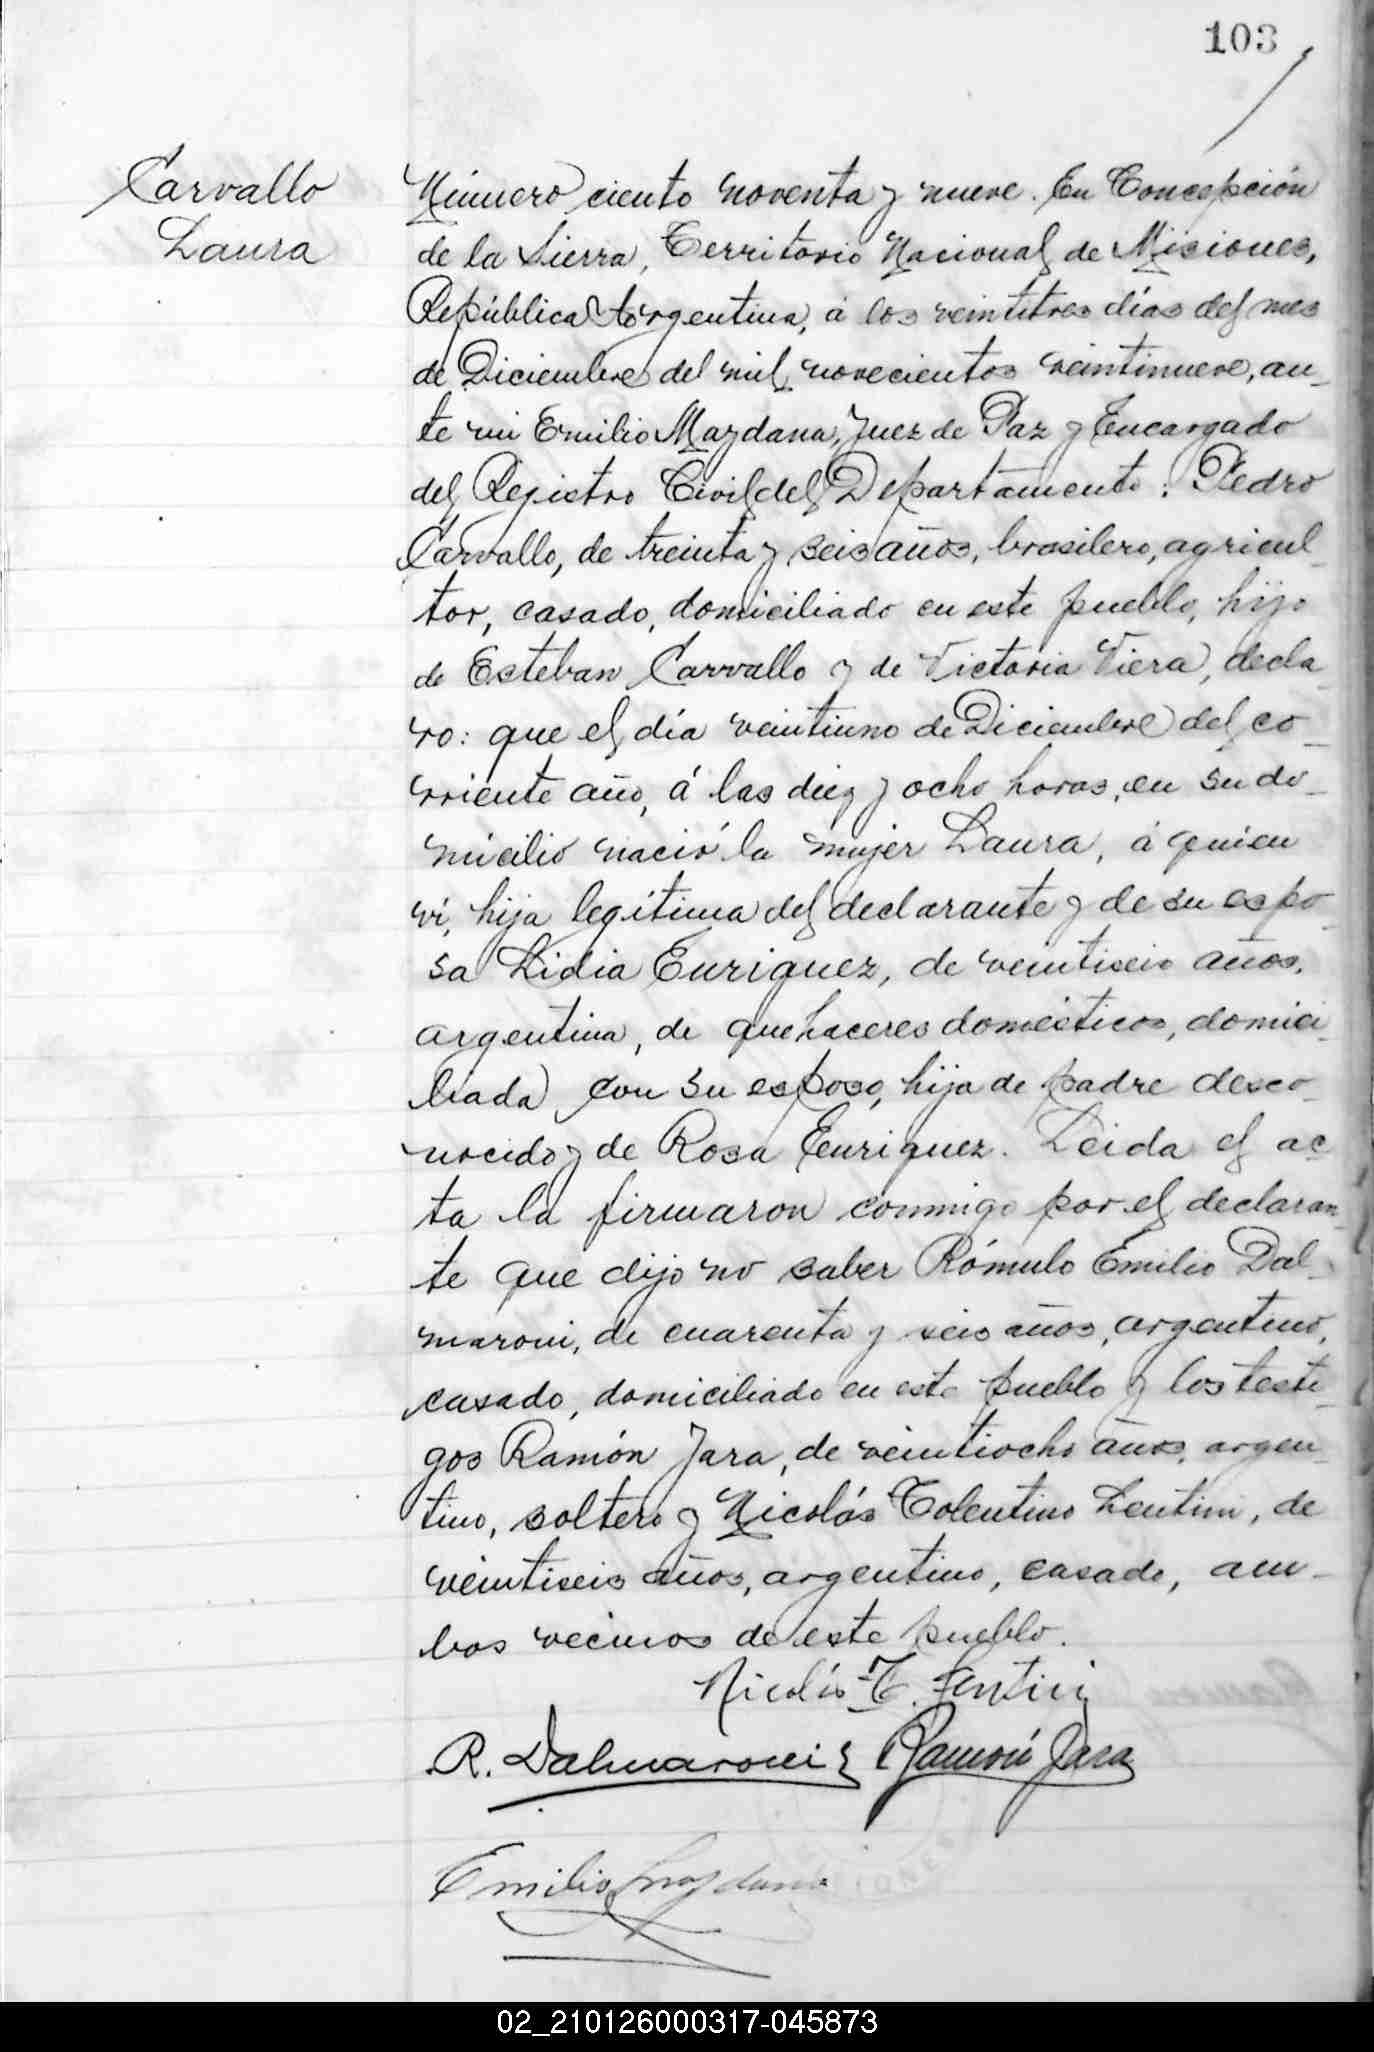 103
Carvallo
Laura
Número ciento noventa y nueve. En Concepción
de la Sierra, Territorio Nacional de Misiones,
República Argentina, á los veintitres días del mes
de Diciembre del mil novecientos veintinueve, an-
te mi Emilio Maydana, Juez de Paz y Encargado
del Registro Civil del Departamento: Pedro
Carvallo, de treinta y seis años, brasilero, agricul-
tor, casado, domiciliado en este pueblo, hijo
de Esteban Carvallo y de Victoria Viera, decla-
ro: que el día veintiuno de Diciembre del co-
rriente año, á las diez y ocho horas, en su do-
micilio nació la mujer Laura, á quien
ví, hija legítima del declarante y de su espo-
sa Lidia Enriquez, de veintiseis años,
argentina, de quehaceres domésticos, domici-
liada con su esposo, hija de padre desco-
nocido y de Rosa Enriquez. Leida el ac-
ta la firmaron conmigo por el declaran-
te que dijo no saber Rómulo Emilio Dal-
maroni, de cuarenta y seis años, argentino,
casado, domiciliado en este pueblo y los testi-
gos Ramón Jara, de veintiocho años, argen-
tino, soltero y Nicolás Tolentino Lentini, de
veintiseis años, argentino, casado, am-
bos vecinos de este pueblo.
Nicolás T. Lentini
R. Dalmaroni Ramón Jara
Emilio Maydana
02_210126000317-045873